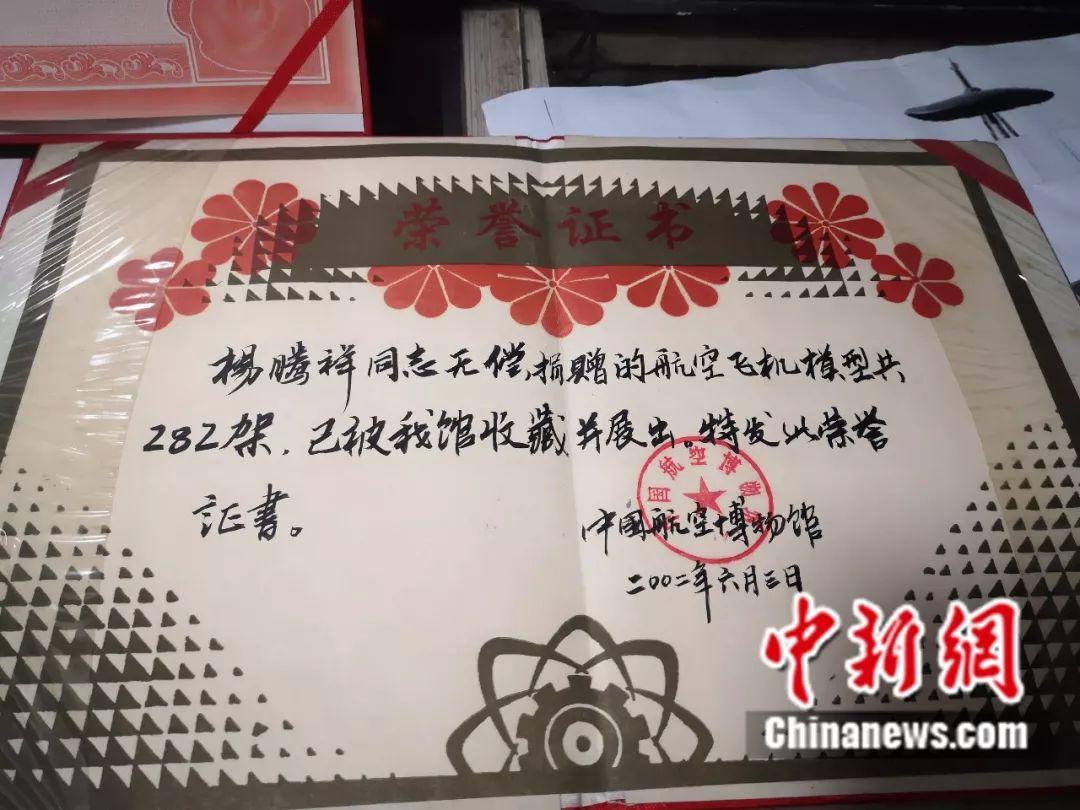 荣誉证书
杨腾祥同志无偿捐赠的航空飞机模型共
282架，已被我馆收藏并展出。特发此荣誉
证书。
国航空博物
中国航空博物馆
二00二年六月三日
中新網
Chinanews.com